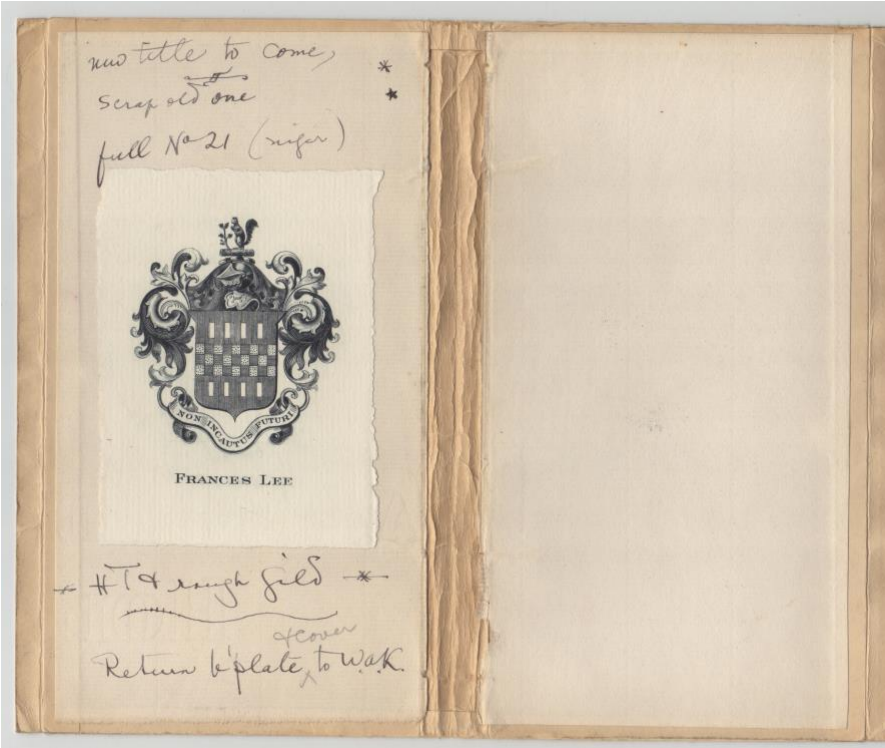 new title to come,
scrap old one
full No 21 (niger)
NON INCAUTUS FUTURI
FRANCES LEE
HT & rough gild
& cover
Return b'plate ‸ to W.a.K.